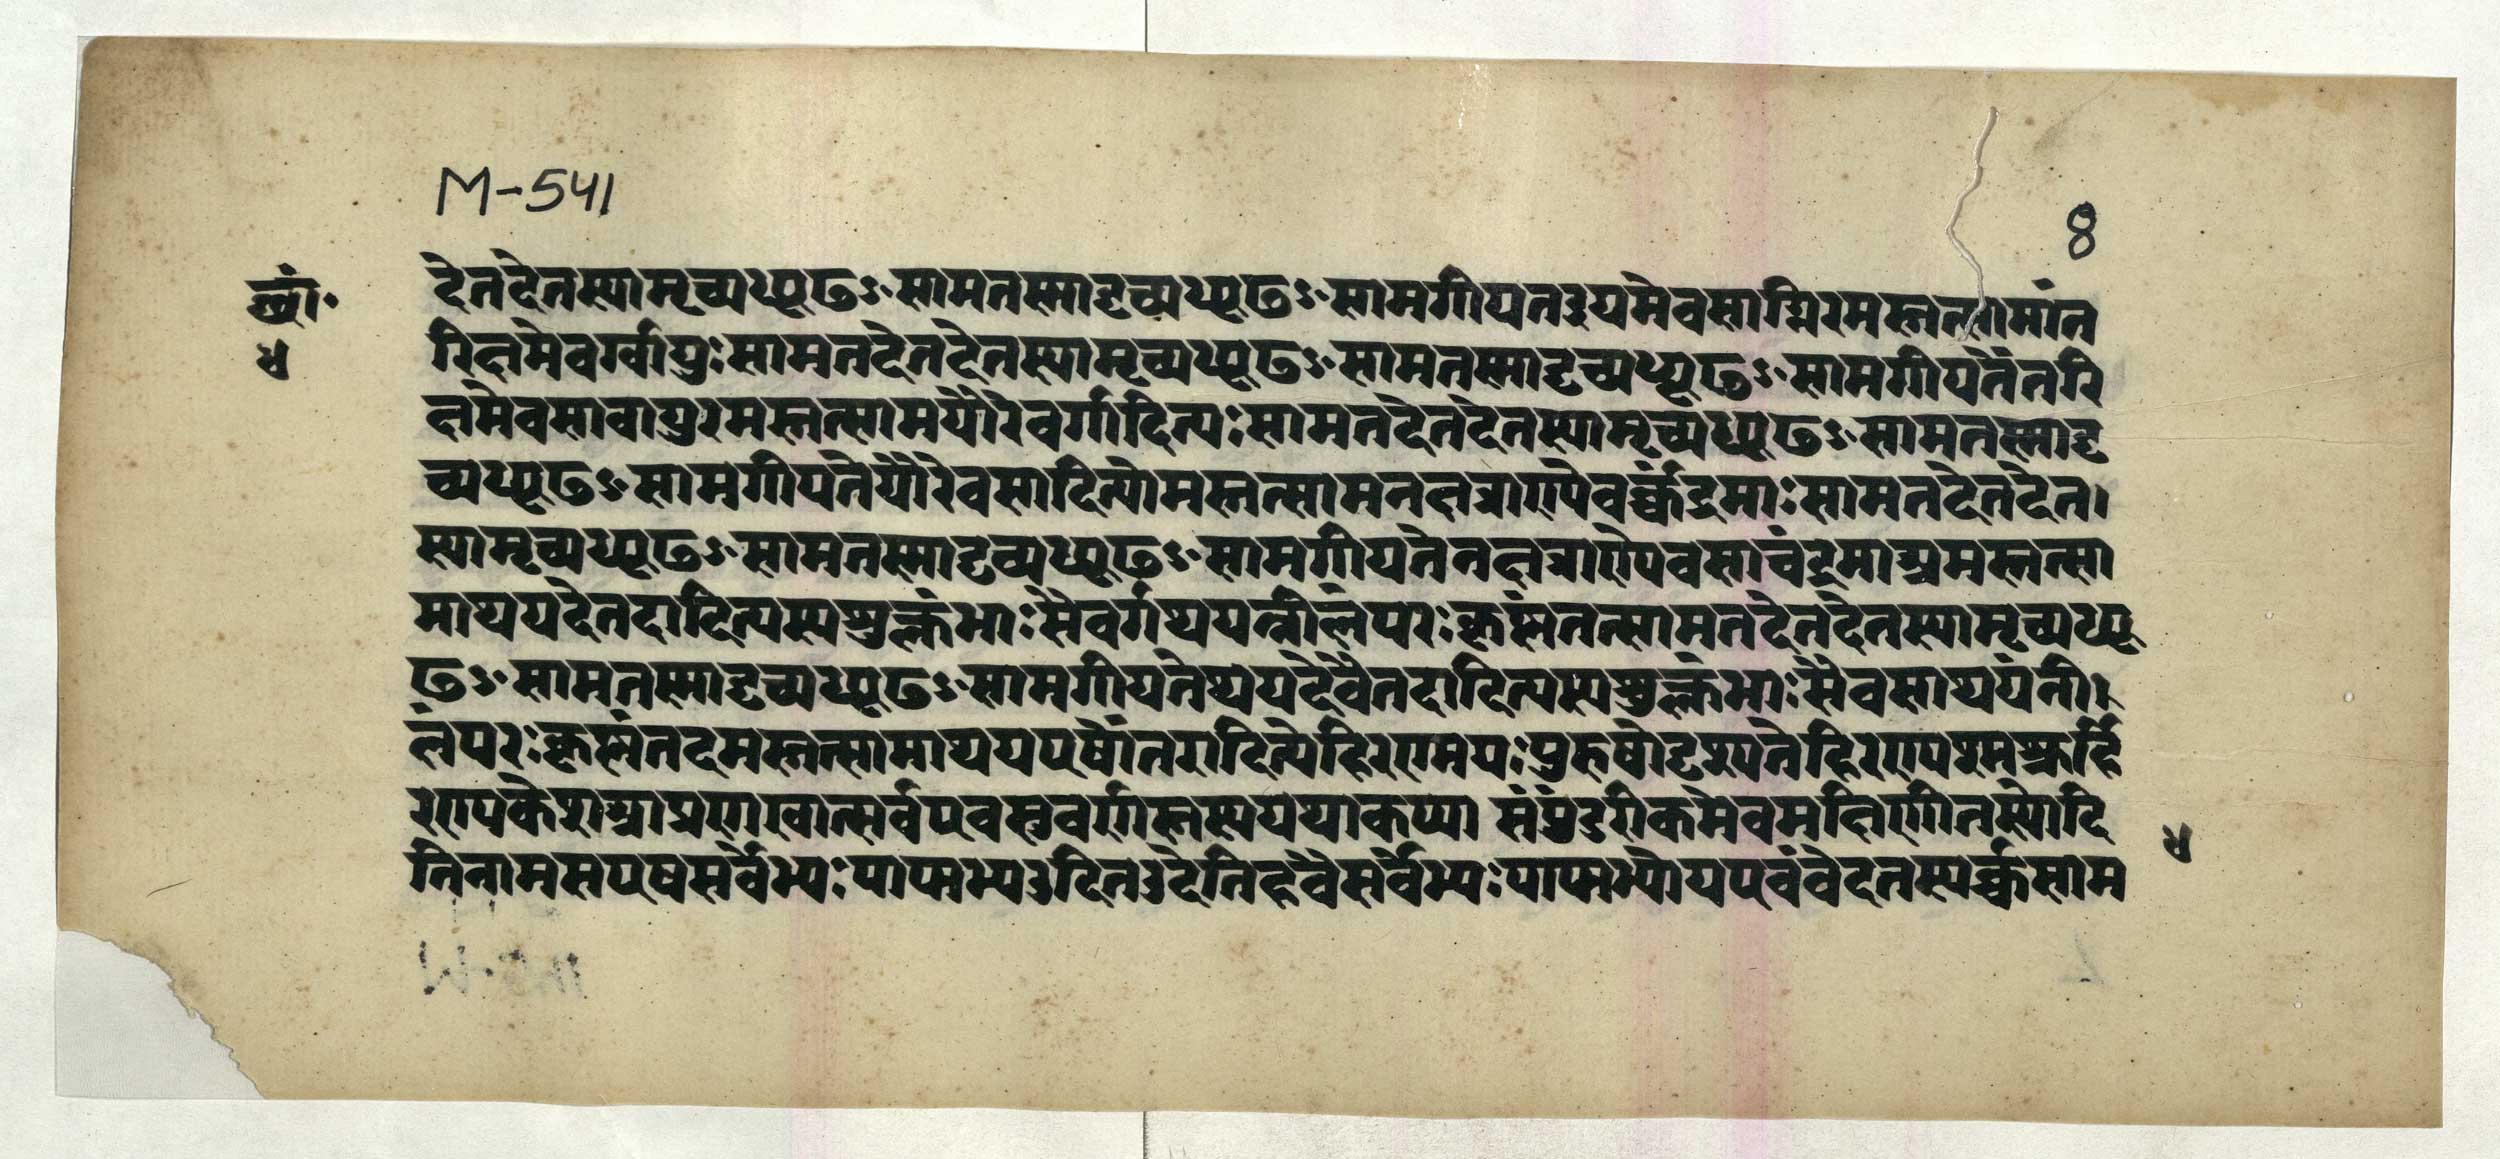 M-541
8
छां॰
४
देतदेतस्यामृच्यध्यूढꣳ सामतस्मादृच्यध्यूढꣳ सामगीयतइयमेवसाग्निरमस्तत्सामांत
रिक्षमेवर्ग्वायुःसामतदेतदेतस्यामृच्यध्यूढꣳ सामतस्मादृच्यध्यूढꣳ सामगीयतेंतरि
क्षमेवसावायुरमस्तत्सामद्यौरेवर्गादित्यःसामतदेतदेतस्यामृच्यध्यूढꣳ सामतस्मादृ
च्यध्यूढꣳ सामगीयतेद्यौरेवसादित्योमस्तत्सामनक्षत्राण्येवर्क्चंद्रमाःसामतदेतदेत।
स्यामृच्यध्यूढꣳ सामतस्मादृच्यध्यूढꣳ सामगीयतेनक्षत्राण्येवसाचंद्रमाअमस्तत्सा
माथयदेतदादित्यस्यशुक्लंभाःसैवर्गथयन्नीलंपरःकृष्णंतत्सामतदेतदेतस्यामृच्यध्यू
ढꣳ सामतस्मादृच्यध्यूढꣳ सामगीयतेथयदेवैतदादित्यस्यशुक्लंभाःसैवसाथयंनी।
लंपरःकृष्णंतदमस्तत्सामाथयएषोंतरादित्येहिरण्मयःपुरुषोदृश्यतेहिरण्यश्मश्रुर्हि
रण्यकेशआप्रणखात्सर्वएवसुवर्णस्तस्ययथाकप्या संपुंडरीकमेवमक्षिणीतस्योदि
तिनामसएषसर्वेभ्यःपाप्मभ्यउदितउदेतिहवैसर्वेभ्यःपाप्मभ्योयएवंवेदतस्यर्क्चसाम
४